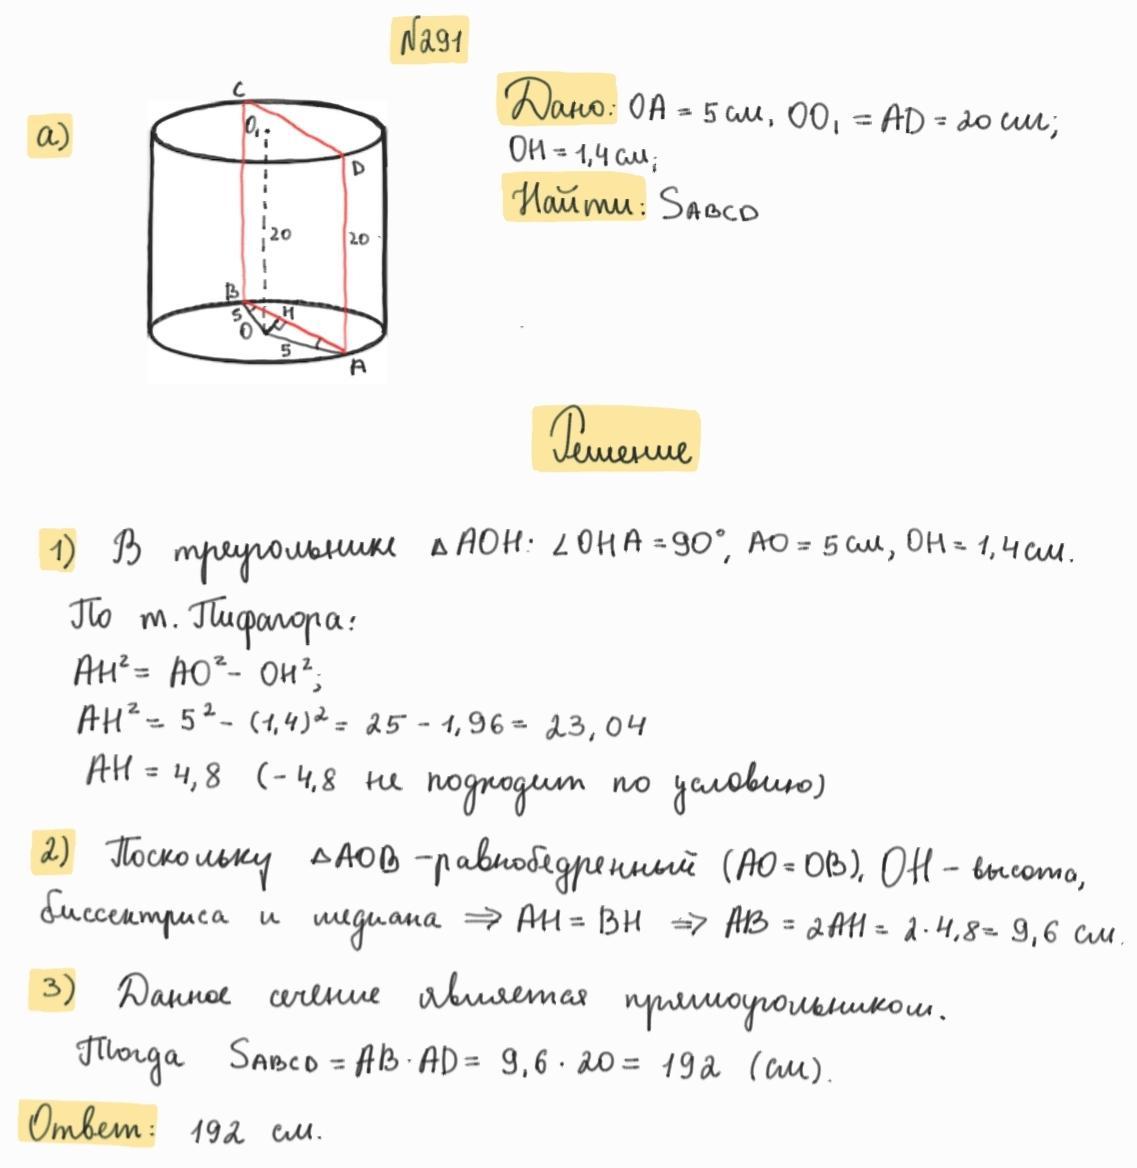 №291
а)
Дано: OA = 5 см, OO₁ = AD = 20 см;
OH = 1,4 см;
Найти: SABCD
C
O₁
D
20
20
B
5
H
O
5
A
Решение
1) В треугольнике △AOH: ∠OHA = 90°, AO = 5 см, OH = 1,4 см.
По т. Пифагора:
AH² = AO² - OH²;
AH² = 5² - (1,4)² = 25 - 1,96 = 23,04
AH = 4,8 (-4,8 не подходит по условию)
2) Поскольку △AOB - равнобедренный (AO = OB), OH - высота,
биссектриса и медиана ⇒ AH = BH ⇒ AB = 2AH = 2·4,8 = 9,6 см.
3) Данное сечение является прямоугольником.
Тогда SABCD = AB·AD = 9,6 · 20 = 192 (см).
Ответ: 192 см.